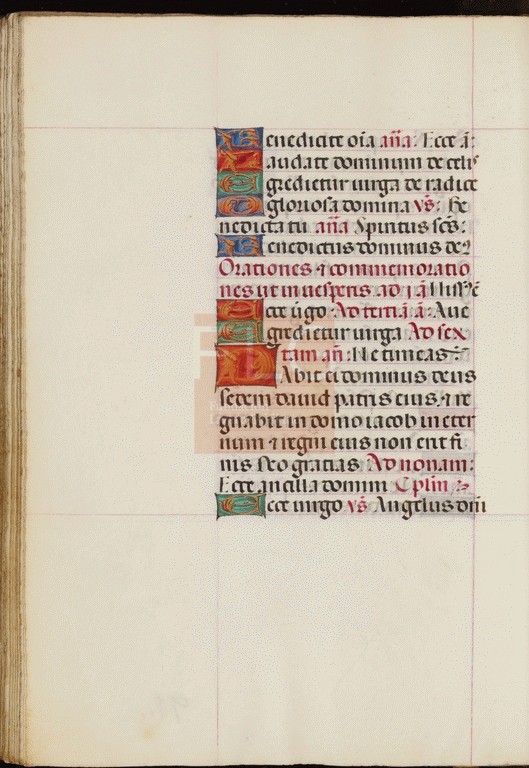 Benedicite oīa aña: Ecce ā:
Laudate dominum de celis
Egredietur uirga de radice
O gloriosa domina vs̄: Be
nedicta tu aña Spiritus scs̄:
Benedictus dominus de⁹
Orationes ⁊ commemoratio
nes ut in uesperis ad j ā Missꝰ ē
Ecce ūgo: Ad tertiā ā: Aue
Egredietur uirga Ad sex
tam añ: Ne timeas
Dabit ei dominus deus
sedem dauid patris eius, ⁊ re
gnabit in domo iacob in eter
num ⁊ regni eius non erit fi
nis Deo gratias Ad nonam:
Ecce ancilla domini Cplm̄
Ecce uirgo vs̄ Angelus dm̄i